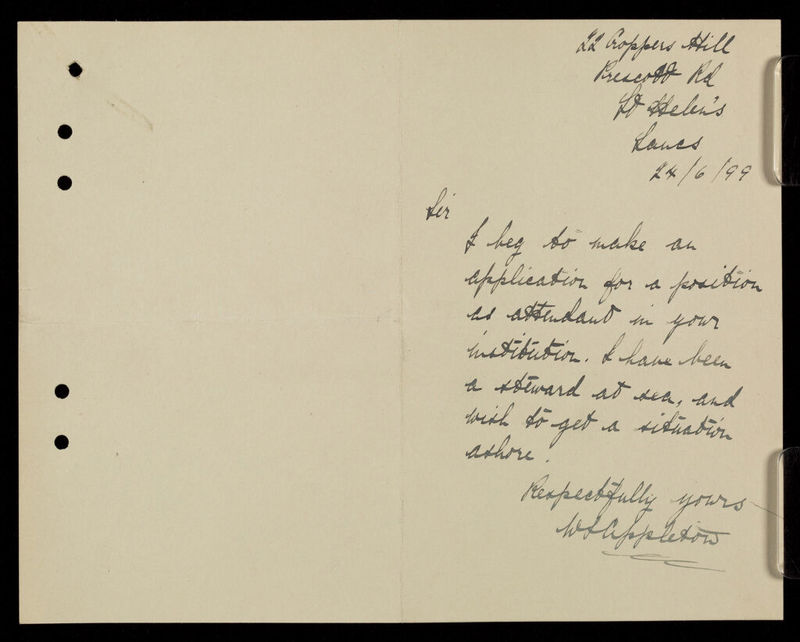 22 Croppers Hill
Prescott Rd
St Helen's
Lancs
24/6/99
Sir
I beg to make an
application for a position
as attendant in your
institution. I have been
a steward at sea, and
wish to get a situation
ashore.
Respectfully yours
W S Appleton